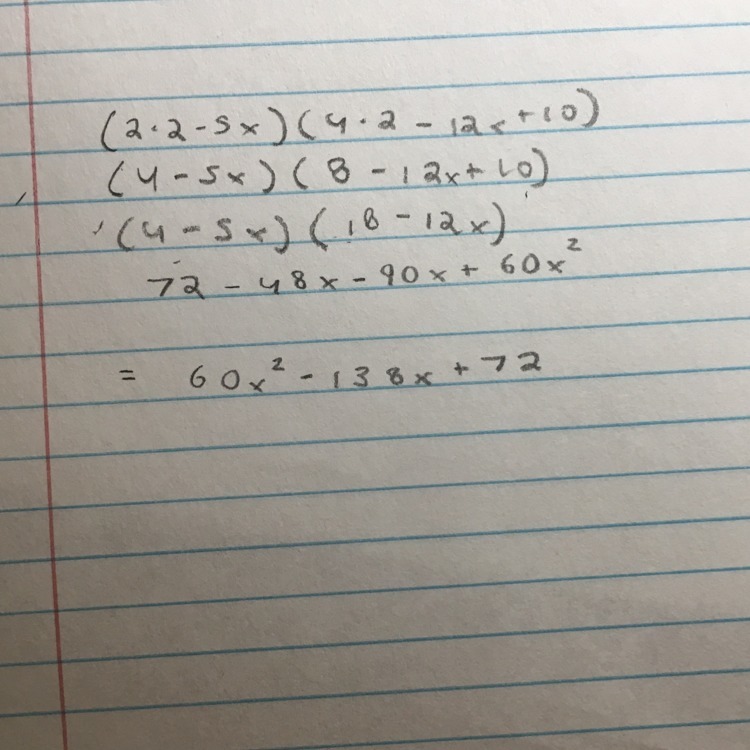 (2·2-5x)(4·2-12x+10)
(4-5x)(8-12x+10)
(4-5x)(18-12x)
72-48x-90x+60x²
= 60x²-138x+72